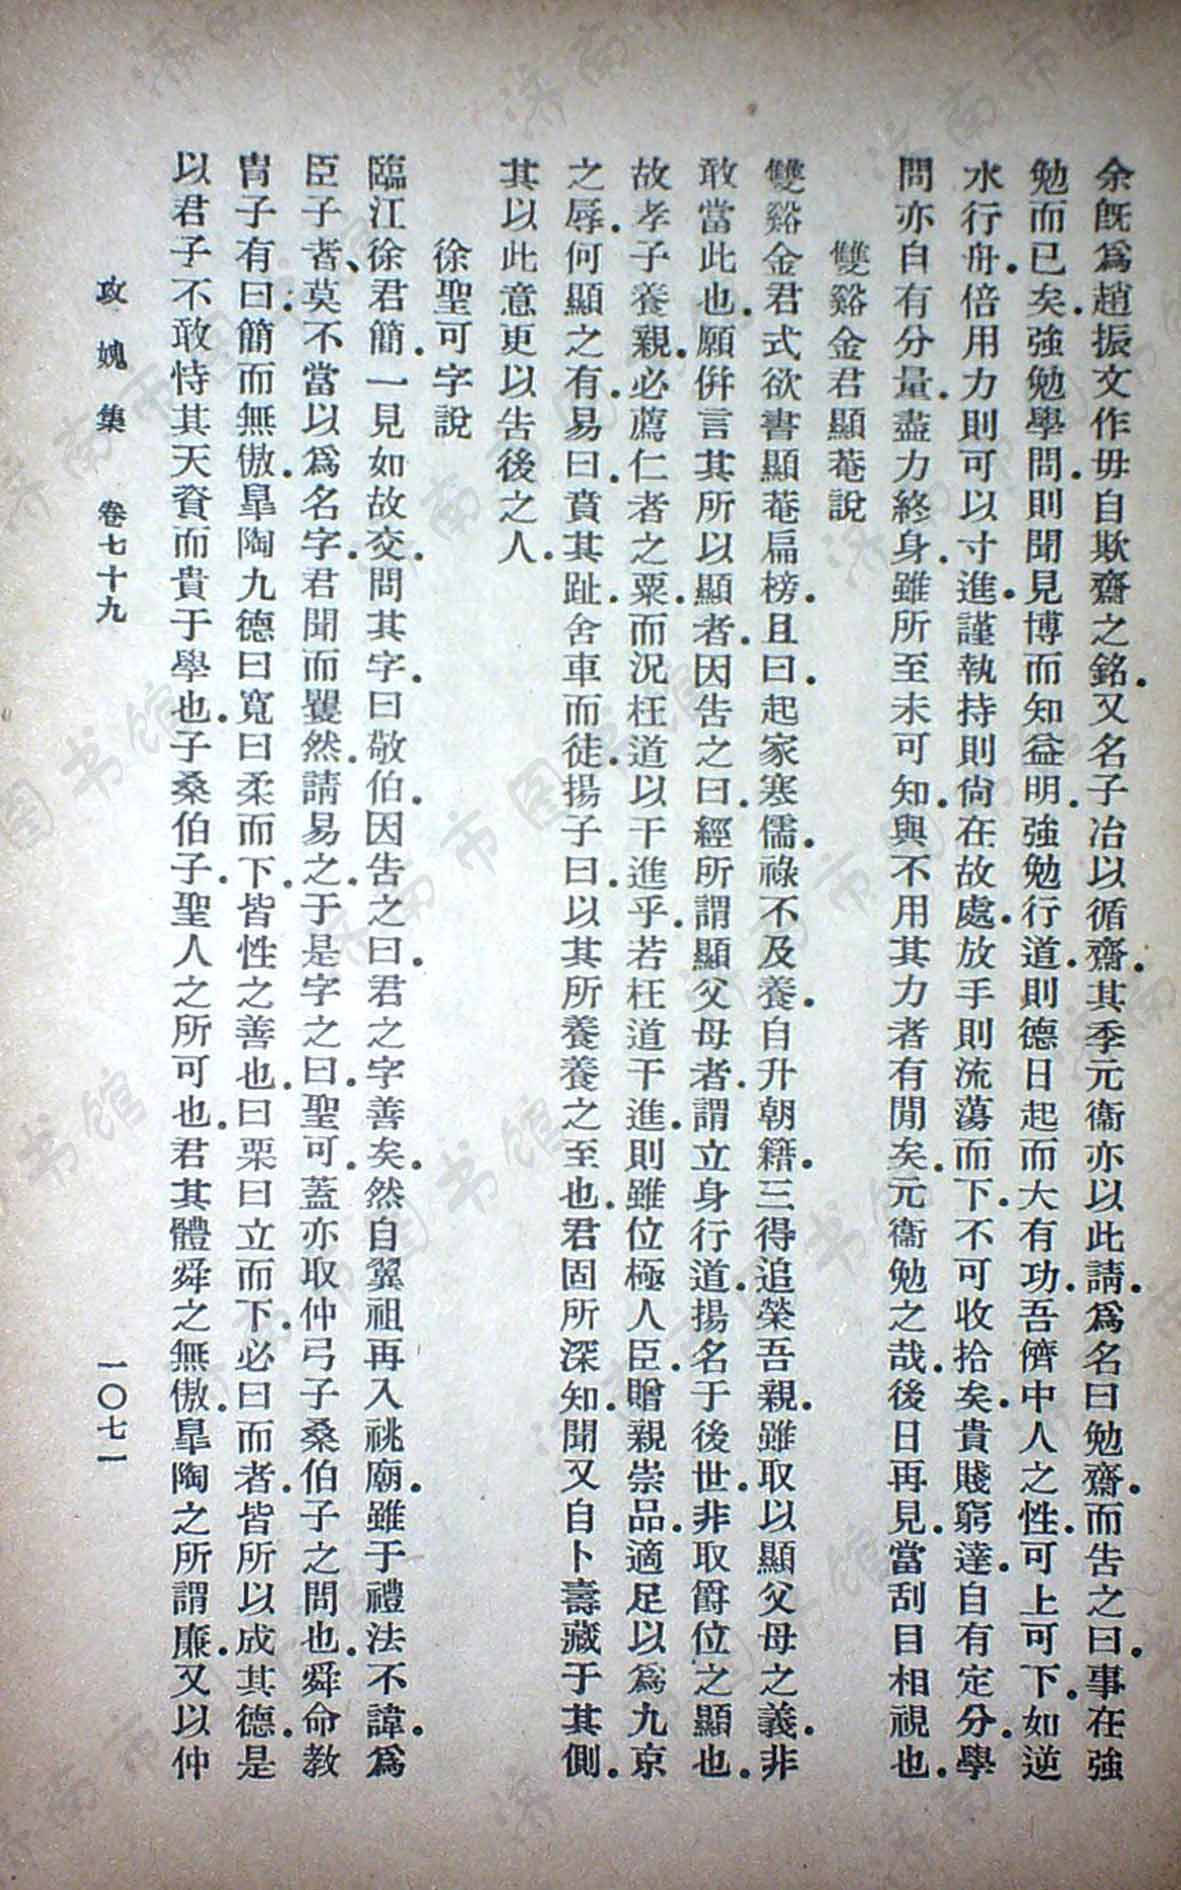 余既爲趙振文作毋自欺齋之銘．又名子冶以循齋．其季元衞亦以此請．爲名曰勉齋．而告之曰．事在強
勉而已矣．強勉學問．則聞見博而知益明．強勉行道．則德日起而大有功．吾儕中人之性．可上可下．如逆
水行舟．倍用力則可以寸進．謹執持則尙在故處．放手則流蕩而下．不可收拾矣．貴賤窮達．自有定分．學
問亦自有分量．盡力終身．雖所至未可知．與不用其力者有閒矣．元衞勉之哉．後日再見．當刮目相視也．
雙谿金君顯菴說
雙谿金君式欲書顯菴扁榜．且曰．起家寒儒．祿不及養．自升朝籍．三得追榮吾親．雖取以顯父母之義．非
敢當此也．願倂言其所以顯者．因告之曰．經所謂顯父母者．謂立身行道．揚名于後世．非取爵位之顯也．
故孝子養親．必薦仁者之粟．而況枉道以干進乎．若枉道干進．則雖位極人臣．贈親崇品．適足以爲九京
之辱．何顯之有．易曰．賁其趾．舍車而徒．揚子曰．以其所養．養之至也．君固所深知．聞又自卜壽藏于其側．
其以此意更以告後之人．
徐聖可字說
臨江徐君簡．一見如故交．問其字．曰敬伯．因告之曰．君之字善矣．然自翼祖再入祧廟．雖于禮法不諱．爲
臣子者、莫不當以爲名字．君聞而矍然．請易之．于是字之曰．聖可．蓋亦取仲弓子桑伯子之問也．舜命教
冑子有曰．簡而無傲．臯陶九德曰寬曰柔而下．皆性之善也．曰栗曰立而下．必曰而者．皆所以成其德．是
以君子不敢恃其天資而貴于學也．子桑伯子．聖人之所可也．君其體舜之無傲．臯陶之所謂廉．又以仲
攻媿集 卷七十九 一〇七一
濟南市图书馆